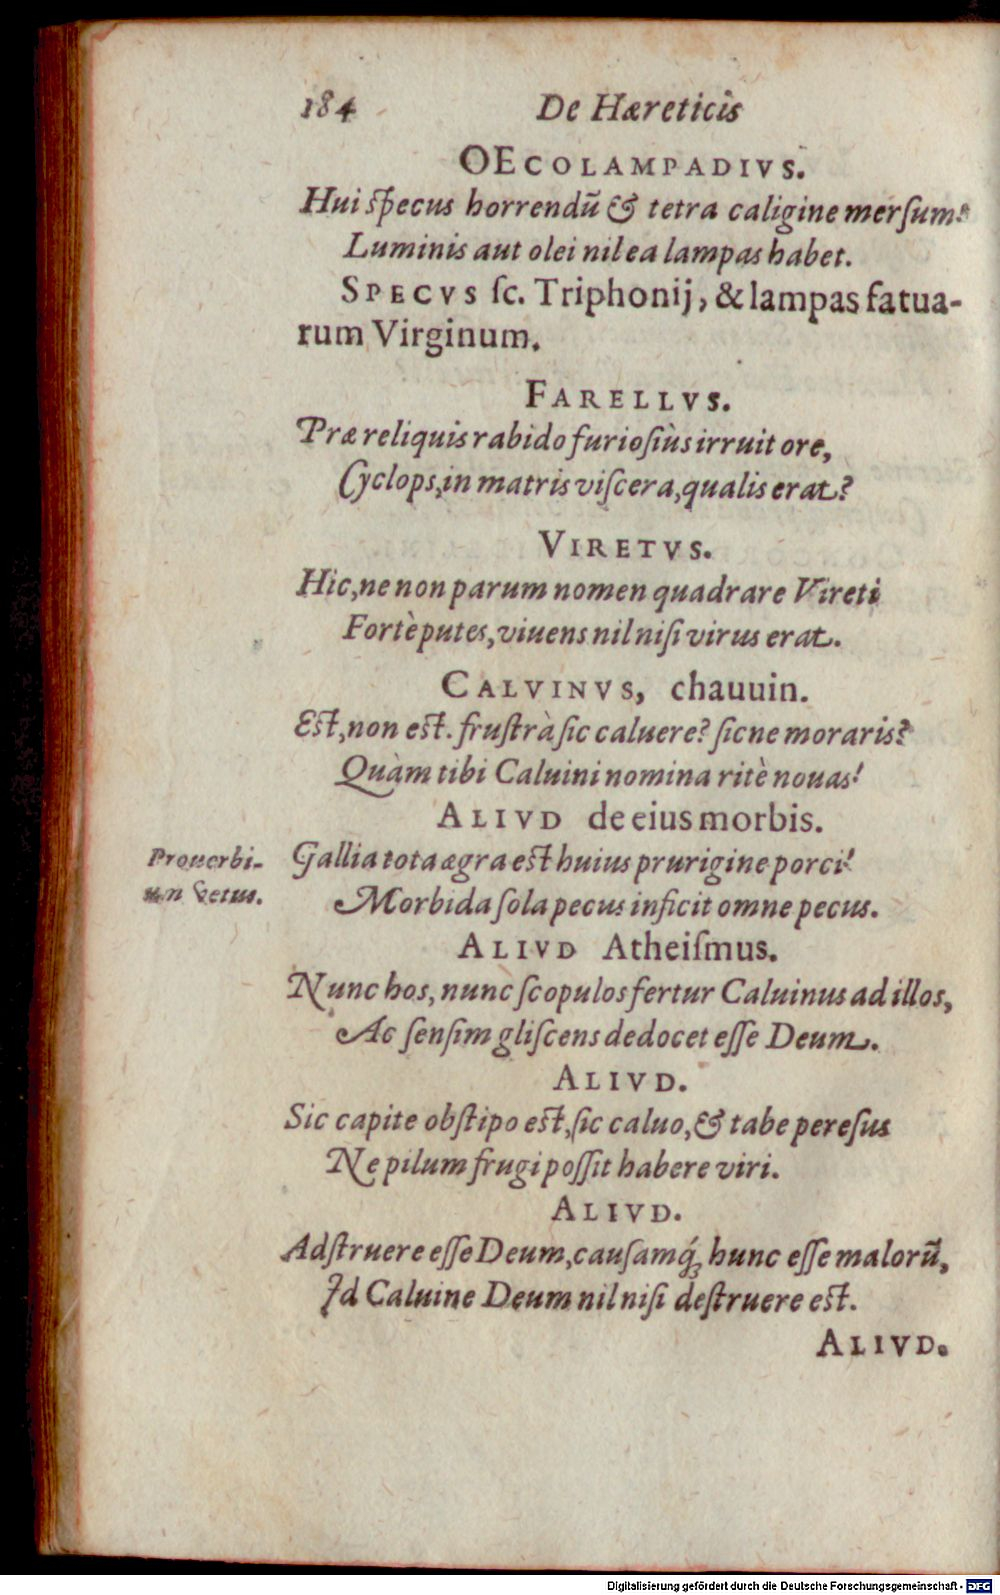 184 De Hæreticis
OECOLAMPADIVS.
Hui specus horrendũ & tetra caligine mersum!
Luminis aut olei nil ea lampas habet.
SPECVS ſc. Triphonij, & lampas fatua-
rum Virginum.
FARELLVS.
Præ reliquis rabido furioſiùs irruit ore,
Cyclops, in matris viſcera, qualis erat?
VIRETVS.
Hic, ne non parum nomen quadrare Vireti
Fortè putes, viuens nil niſi virus erat.
CALVINVS, chauuin.
Eſt, non eſt. fruſtrà ſic caluere? ſicne moraris?
Quàm tibi Caluini nomina ritè nouas!
ALIVD de eius morbis.
Prouerbi-
um vetus.
Gallia tota ægra eſt huius prurigine porci!
Morbida ſola pecus inficit omne pecus.
ALIVD Atheiſmus.
Nunc hos, nunc ſcopulos fertur Caluinus ad illos,
Ac ſenſim gliſcens dedocet eſſe Deum.
ALIVD.
Sic capite obſtipo eſt, ſic caluo, & tabe pereſus
Ne pilum frugi poſſit habere viri.
ALIVD.
Adſtruere eſſe Deum, cauſamq́ꝫ hunc eſſe malorũ,
Id Caluine Deum nil niſi deſtruere eſt.
ALIVD.
Digitalisierung gefördert durch die Deutsche Forschungsgemeinschaft - DFG